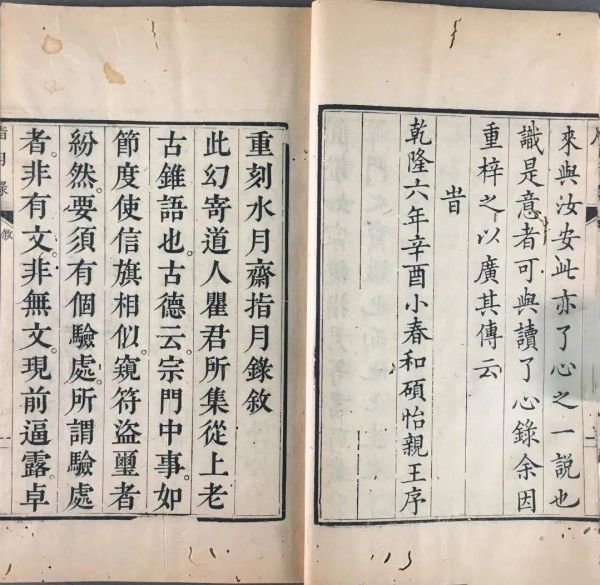 來與汝安此亦了心之一說也
識是意者可與讀了心錄余因
重梓之以廣其傳云
旹
乾隆六年辛酉小春和碩怡親王序
重刻水月齋指月錄敘
此幻寄道人瞿君所集從上老
古錐語也。古德云。宗門中事。如
節度使信旗相似。窺符盜璽者
紛然。要須有個驗處。所謂驗處
者。非有文。非無文。現前逼露。卓
指月錄
敘
一